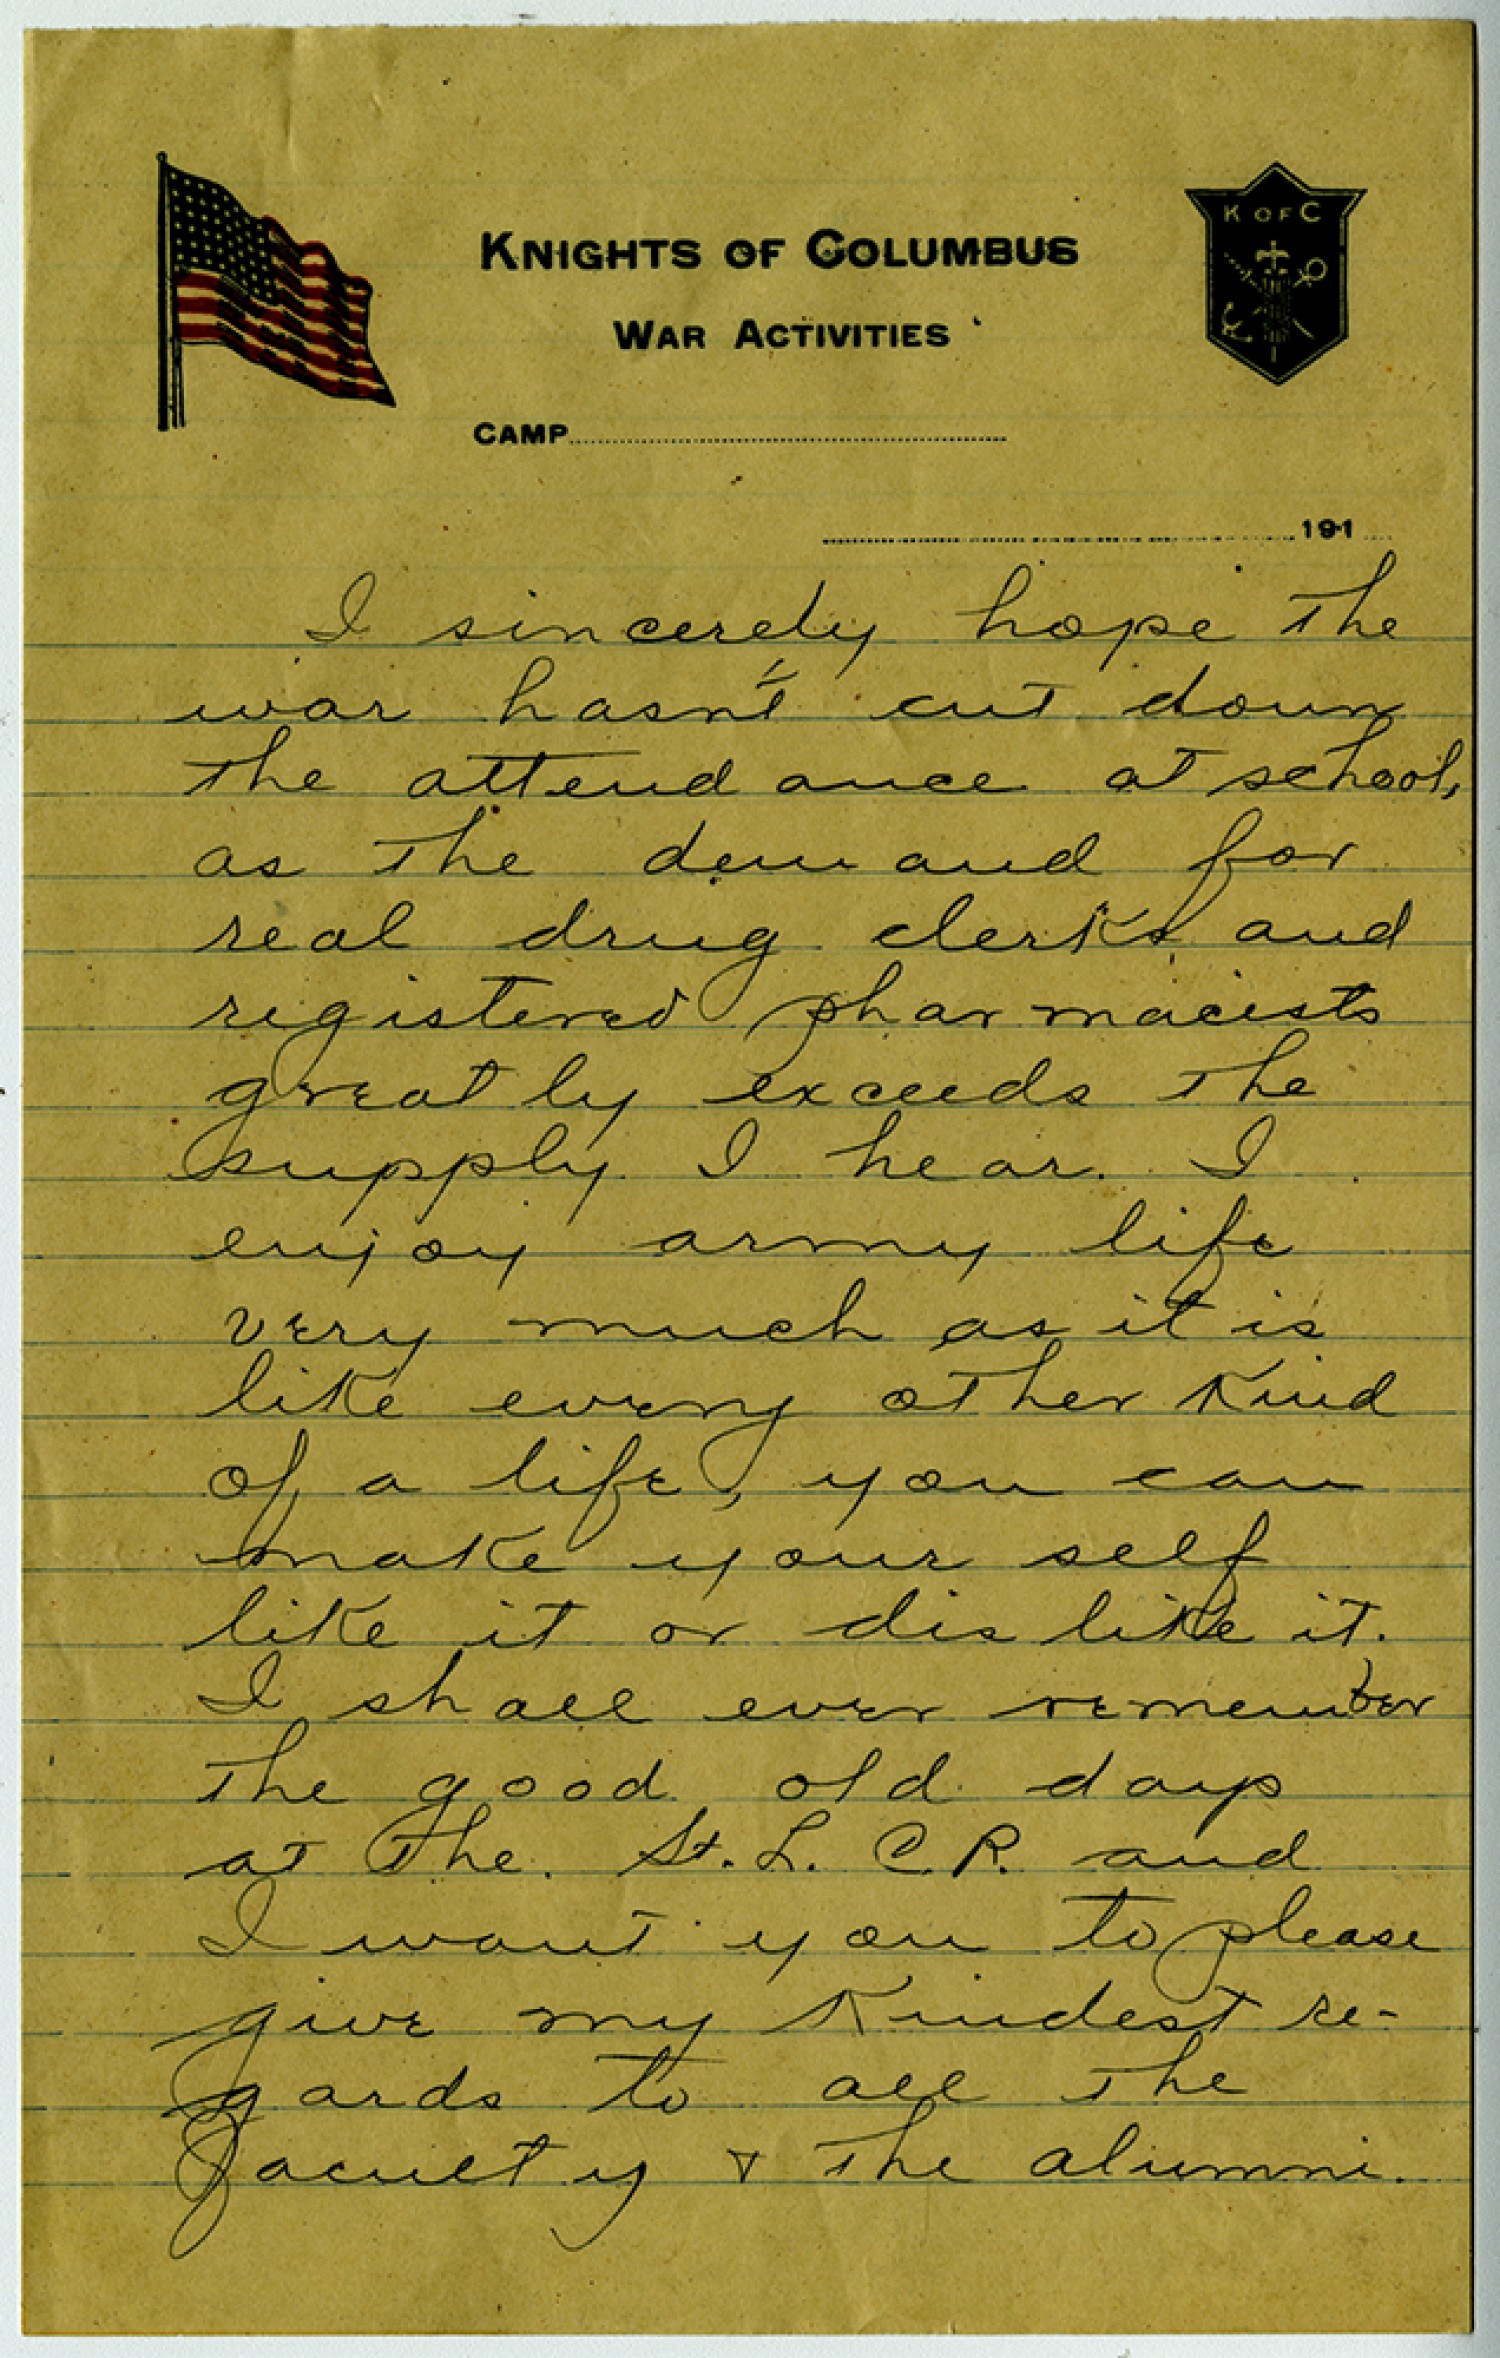 K OF C
KNIGHTS OF COLUMBUS
WAR ACTIVITIES
CAMP
191
I sincerely hope the
war hasn't cut down
the attendance at school,
as the demand for
real drug clerks and
registered pharmacists
greatly exceeds the
supply I hear. I
enjoy army life
very much as it is
like every other kind
of a life, you can
make your self
like it or dislike it.
I shall ever remember
the good old days
at the St. L. C. P. and
I want you to please
give my kindest re-
gards to all the
Faculty & the alumni.